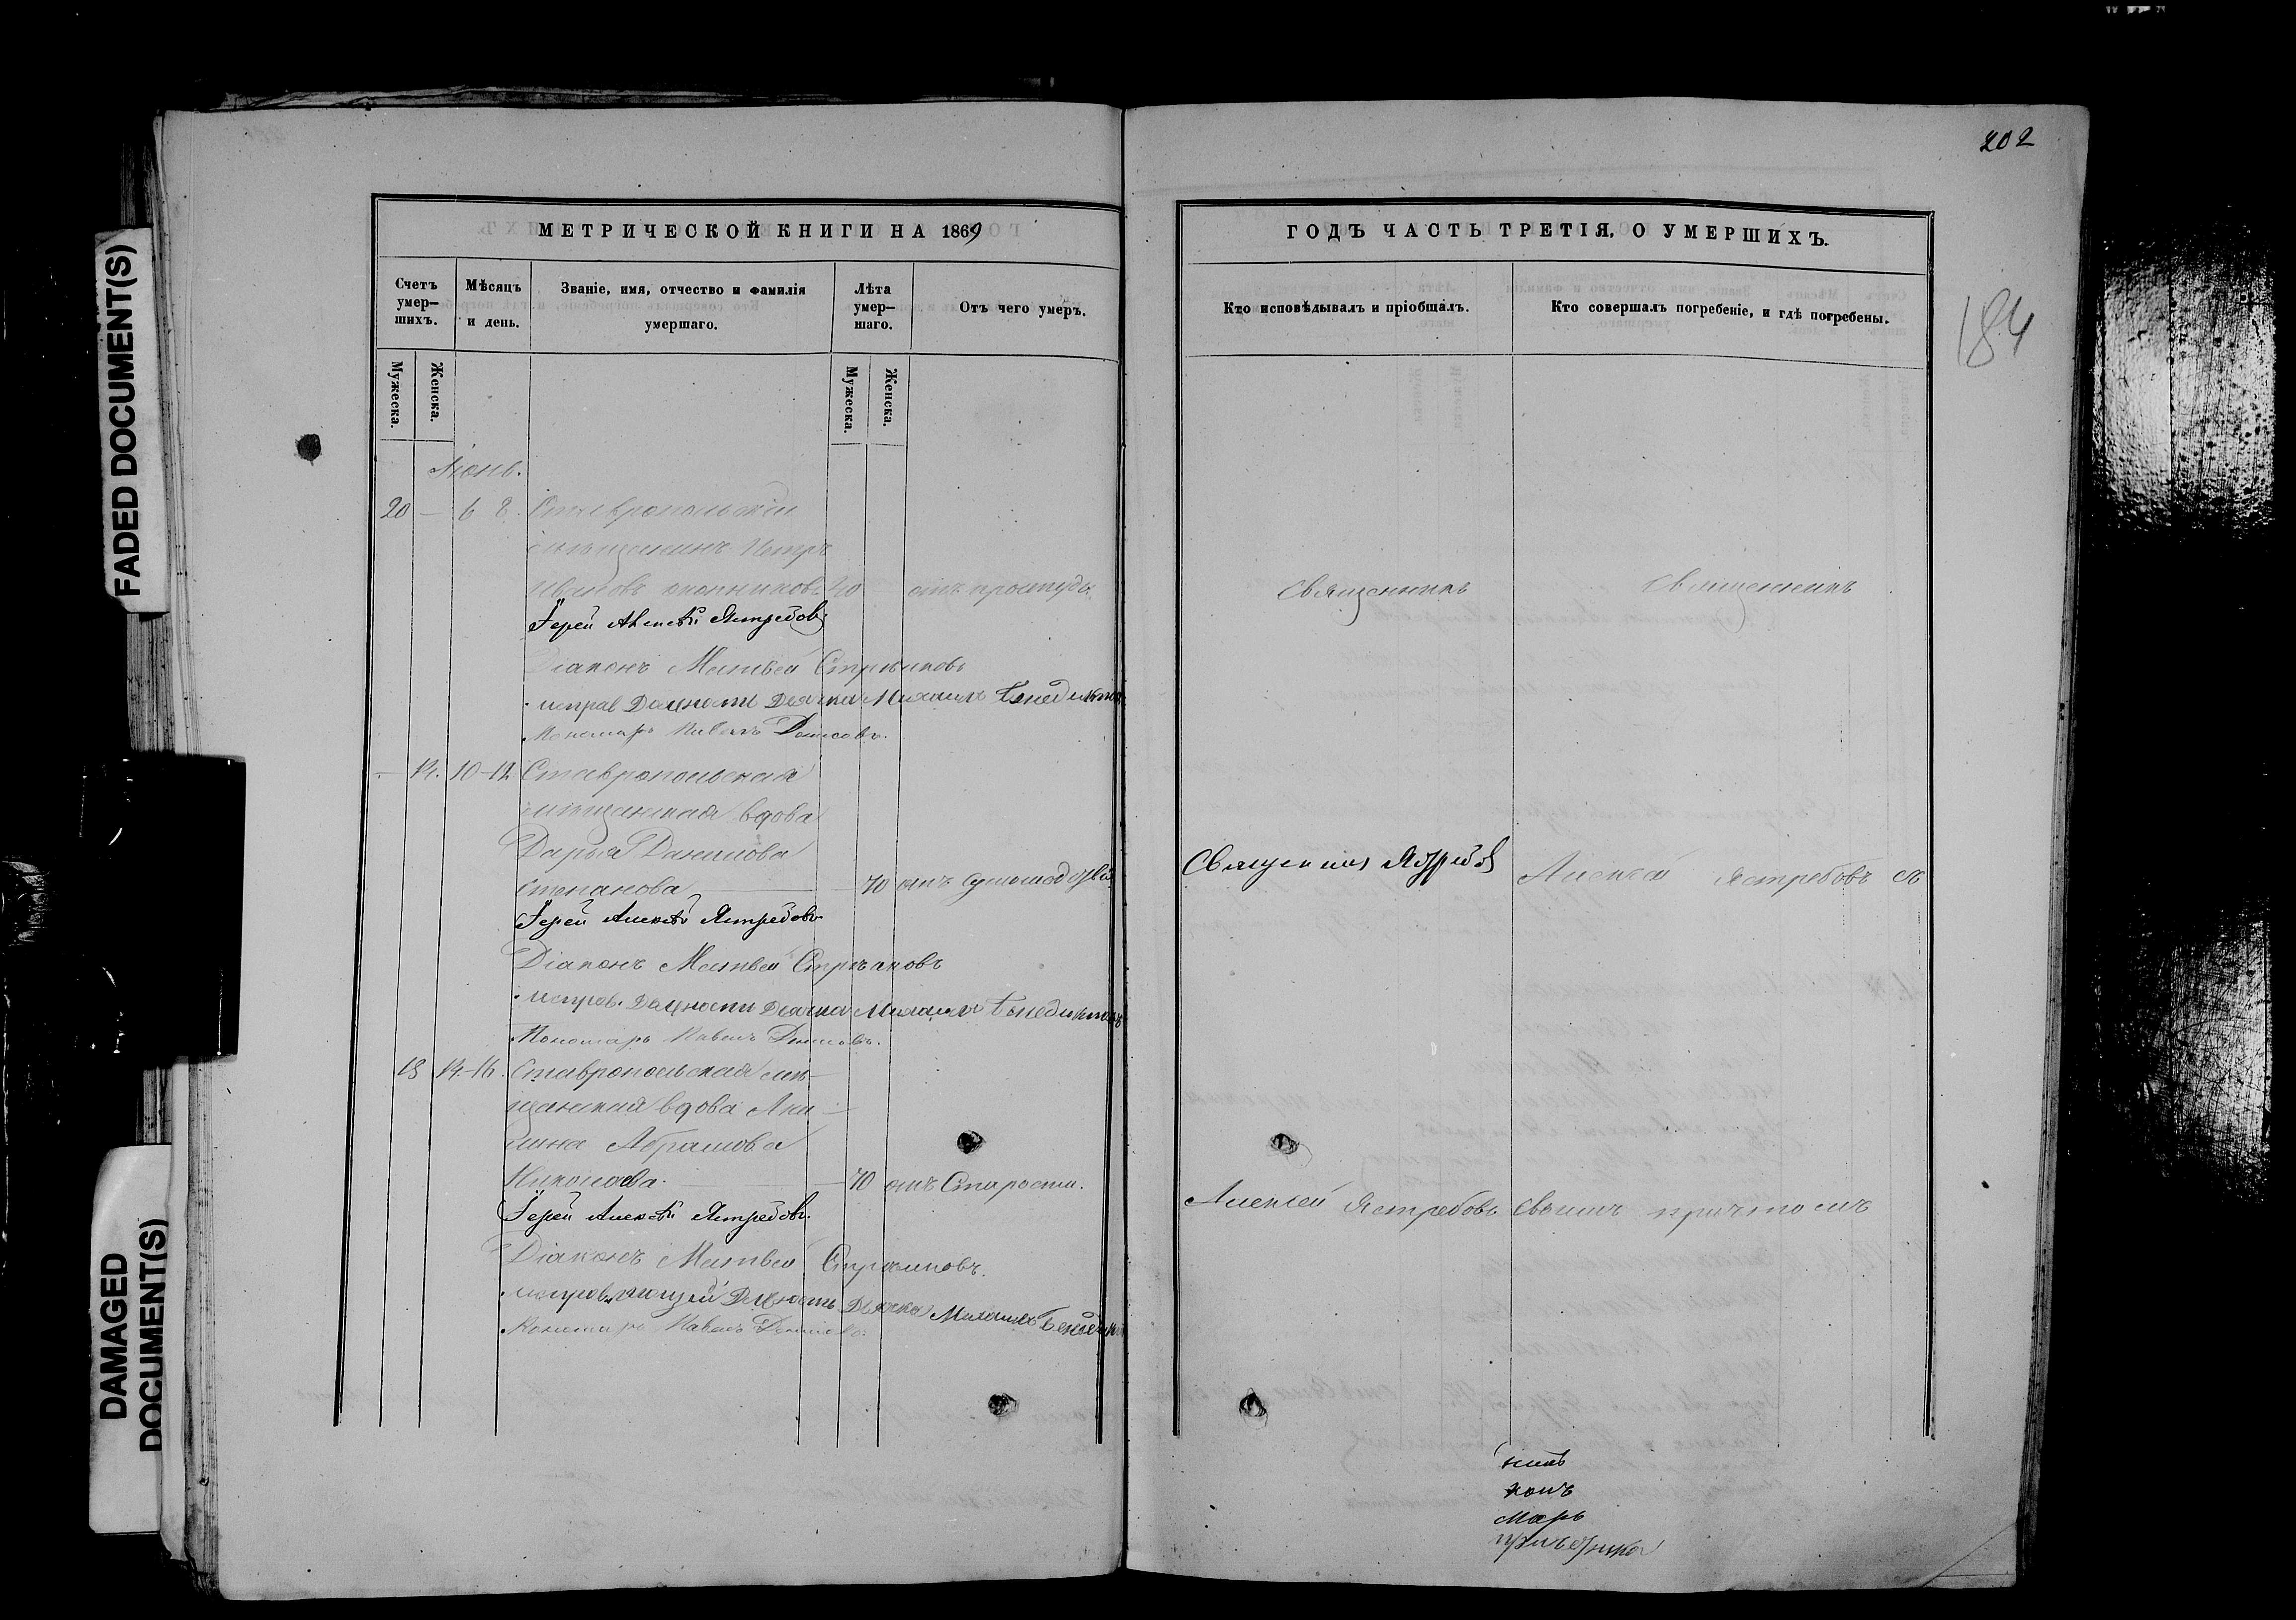 202
184
FADED DOCUMENT(S)
DAMAGED
DOCUMENT(S)
МЕТРИЧЕСКОЙ КНИГИ НА 1869
Счетъ умер-шихъ.
Мѣсяцъ и день.
Званіе, имя, отчество и фамилія умершаго.
Лѣта умер-шаго.
Отъ чего умеръ.
Мужеска.
Женска.
Мужеска.
Женска.
Іюнь.
20 — 6 8. Ставропольскій
мѣщанинъ Петръ
Ивановъ 40 отъ простуды
Іерей Алексѣй Ястребовъ
Діаконъ Матвей Стрѣлковъ
исправ Должность Дьячка Михаилъ Бенедиктовъ
Пономарь Павелъ Денисовъ.
— 14. 10-12 Ставропольская
мѣщанская вдова
Дарья Данилова
Степанова — 70 отъ
Іерей Алексѣй Ястребовъ
Діаконъ Матвей Стрѣлковъ
исправ. Должность Дьячка Михаилъ Бенедиктовъ
Пономарь Павелъ Денисовъ.
15 14-16. Ставропольская мѣ-
щанская вдова Аку-
лина Абрамова
Николаева. — 70 отъ Старости.
Іерей Алексѣй Ястребовъ.
Діаконъ Матвей Стрѣлковъ.
исправляющій Должность Дьячка Михаилъ
Пономарь Павелъ Денисовъ.
ГОДЪ ЧАСТЬ ТРЕТІЯ, О УМЕРШИХЪ.
Кто исповѣдывалъ и пріобщалъ.
Кто совершалъ погребеніе, и гдѣ погребены.
Священникъ
Священникъ
Священникъ Ястребовъ
Алексѣй Ястребовъ съ
Алексѣй Ястребовъ
своимъ причтомъ
комъ
марь